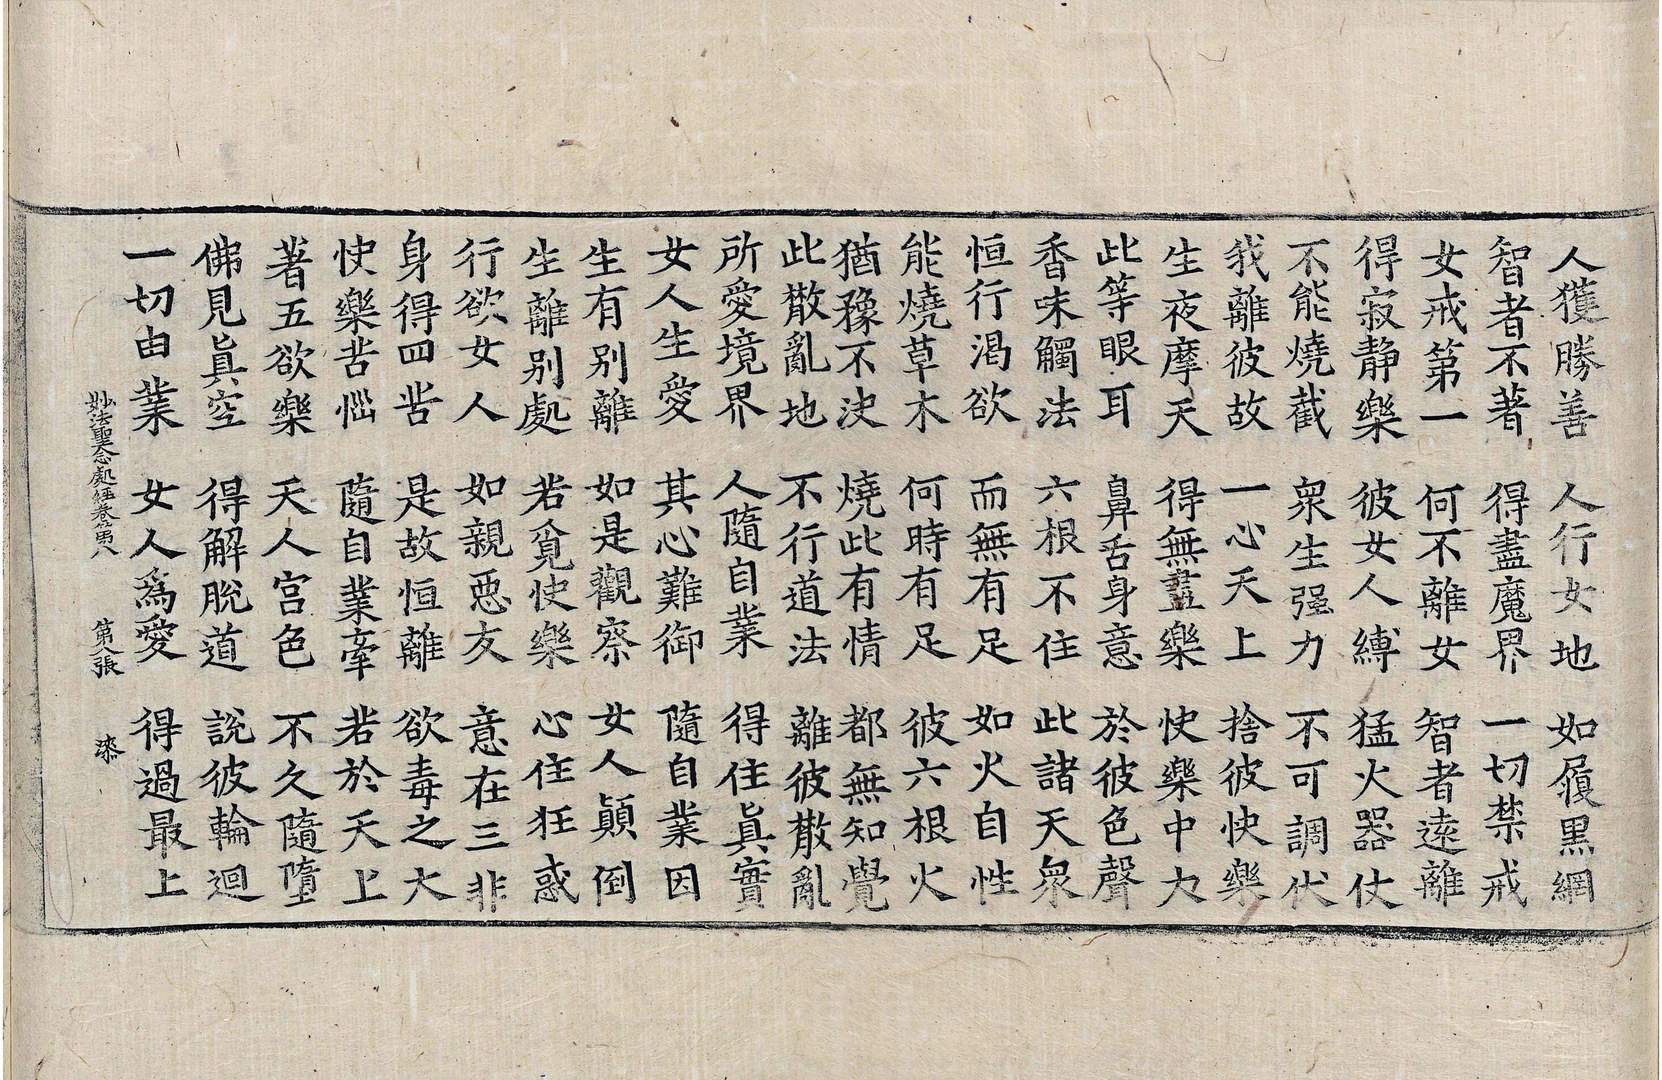 人獲勝善　人行女地　如履黑網
智者不著　得盡魔界　一切禁戒
女戒第一　何不離女　智者遠離
得寂静樂　彼女人縛　猛火器仗
不能燒截　衆生强力　不可調伏
我離彼故　一心天上　捨彼快樂
生夜摩天　得無盡樂　快樂中力
此等眼耳　鼻舌身意　於彼色聲
香味觸法　六根不住　此諸天衆
恒行渴欲　而無有足　如火自性
能燒草木　何時有足　彼六根火
猶豫不决　燒此有情　都無知覺
此散亂地　不行道法　離彼散亂
所愛境界　人隨自業　得住真實
女人生愛　其心難御　隨自業因
生有别離　如是觀察　女人顛倒
生離别處　若覓快樂　心住狂惑
行欲女人　如親惡友　意在三非
身得四苦　是故恒離　欲毒之大
快樂苦惱　隨自業牽　若於天上
著五欲樂　天人宫色　不久隨墮
佛見真空　得解脱道　說彼輪迴
一切由業　女人爲愛　得過最上
妙法聖念處經卷第八　第八張　漆